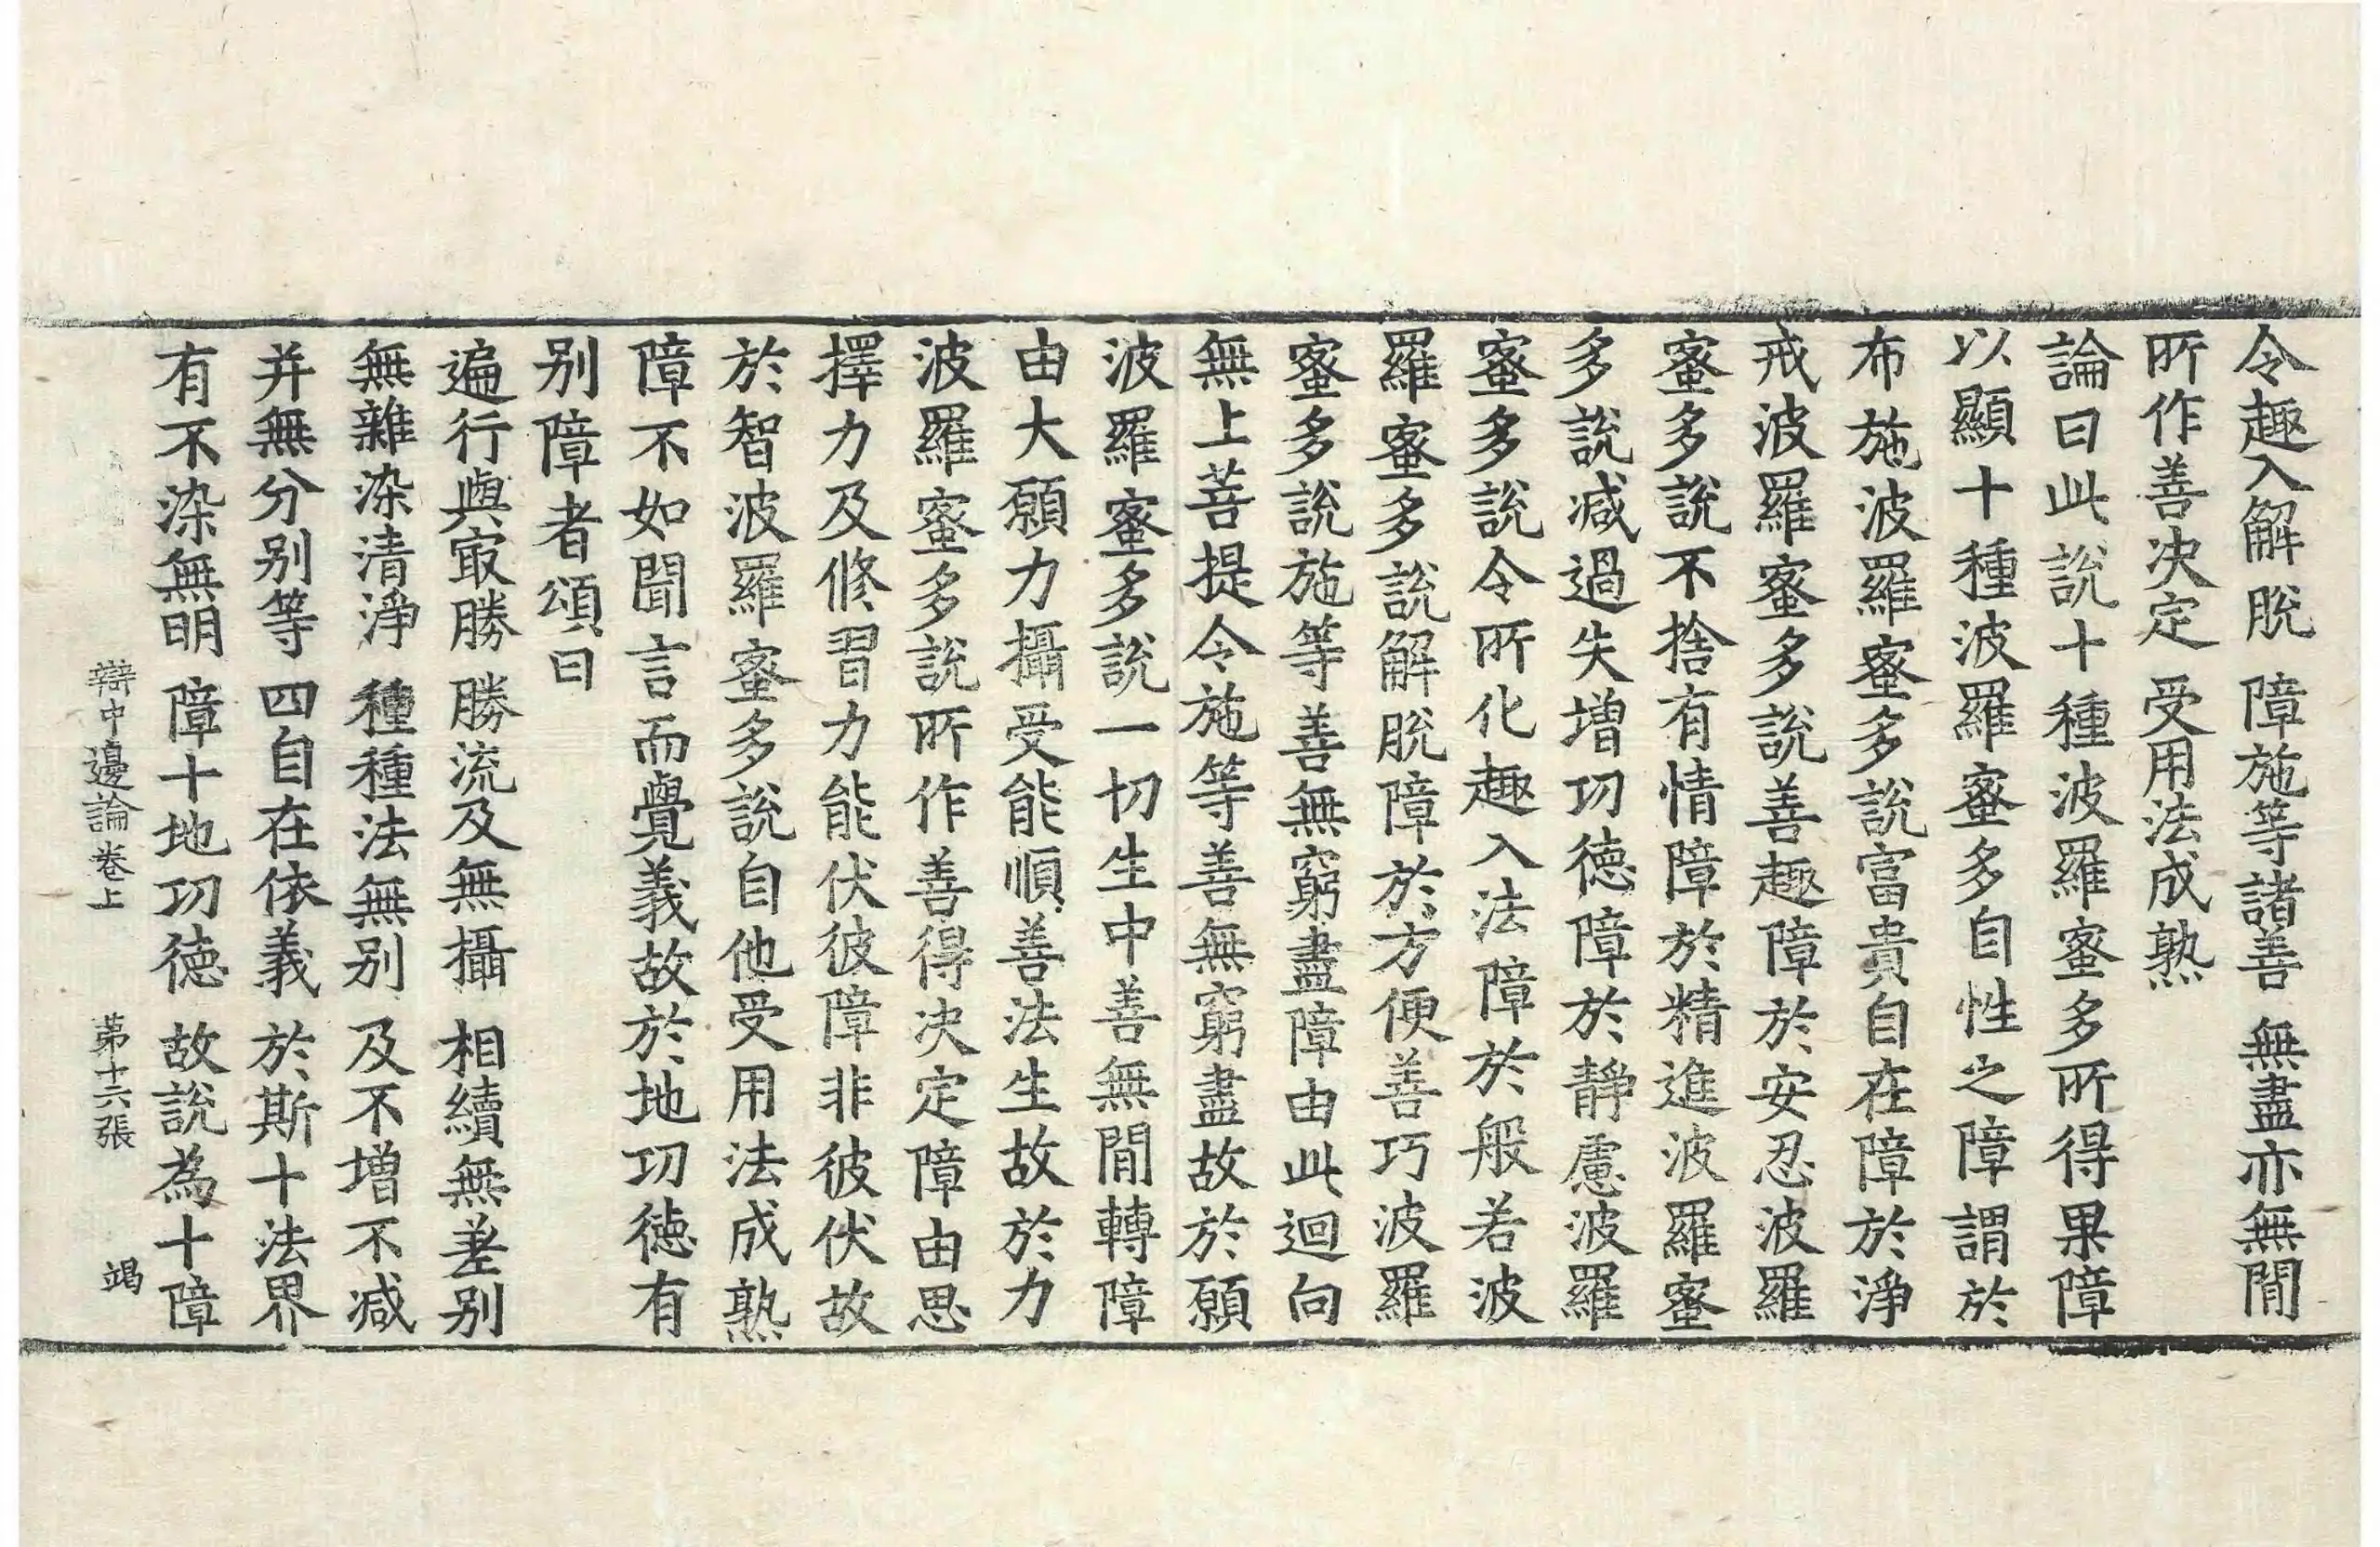 令趣入解脫　障施等諸善　無盡亦無閒
所作善决定　受用法成熟
論曰此說十種波羅蜜多所得果障
以顯十種波羅蜜多自性之障謂於
布施波羅蜜多說富貴自在障於淨
戒波羅蜜多說善趣障於安忍波羅
蜜多說不捨有情障於精進波羅蜜
多說减過失增功德障於靜慮波羅
蜜多說令所化趣入法障於般若波
羅蜜多說解脫障於方便善巧波羅
蜜多說施等善無窮盡障由此迴向
無上菩提令施等善無窮盡故於願
波羅蜜多說一切生中善無閒轉障
由大願力攝受能順善法生故於力
波羅蜜多說所作善得决定障由思
擇力及修習力能伏彼障非彼伏故
於智波羅蜜多說自他受用法成熟
障不如聞言而覺義故於地功德有
別障者頌曰
遍行與㝡勝　勝流及無攝　相續無差別
無雜染清淨　種種法無別　及不增不减
并無分別等　四自在依義　於斯十法界
有不染無明　障十地功德　故說為十障
辯中邊論卷上　第十六張　竭